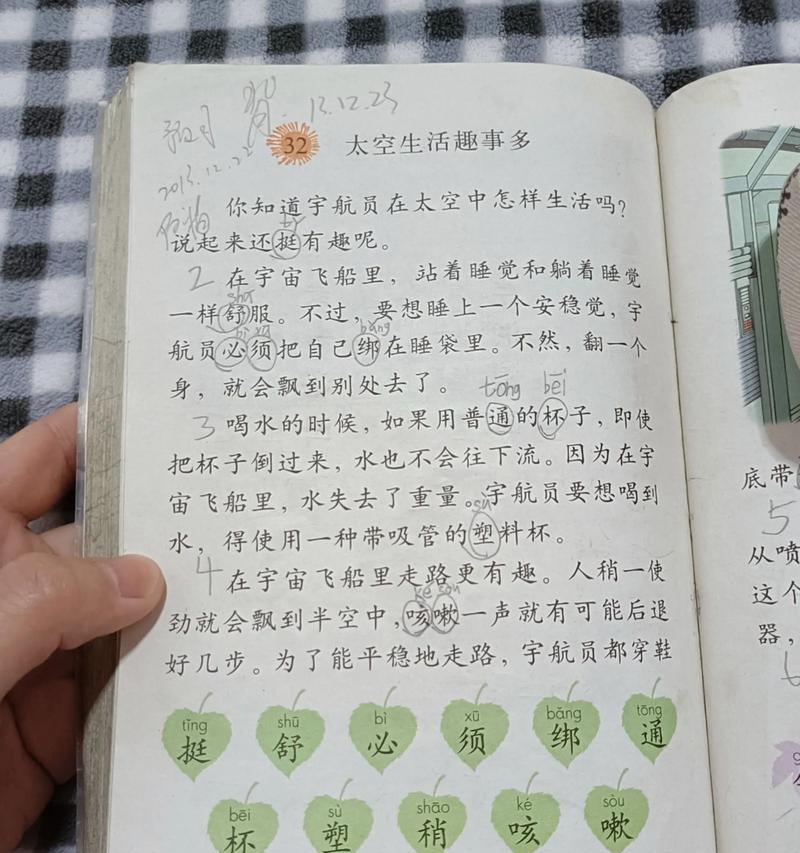 13.12.23
32 太空生活趣事多
2013.12.22
你知道宇航员在太空中怎样生活吗？
说起来还挺有趣呢。
2 在宇宙飞船里，站着睡觉和躺着睡觉
shū
一样舒服。不过，要想睡上一个安稳觉，宇
bì xū bǎng
航员必须把自己绑在睡袋里。不然，翻一个
身，就会飘到别处去了。
tōng bēi
3 喝水的时候，如果用普通的杯子，即使
把杯子倒过来，水也不会往下流。因为在宇
宙飞船里，水失去了重量。宇航员要想喝到
sù
水，得使用一种带吸管的塑料杯。
4 在宇宙飞船里走路更有趣。人稍一使
ké sòu
劲就会飘到半空中，咳嗽一声就有可能后退
好几步。为了能平稳地走路，宇航员都穿鞋
tǐng shū bì xū bǎng tōng
挺 舒 必 须 绑 通
bēi sù shāo ké sòu
杯 塑 稍 咳 嗽
底带
5
从喷
这个
器，